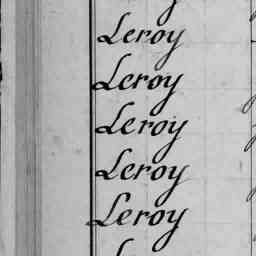 Leroy
Leroy
Leroy
Leroy
Leroy